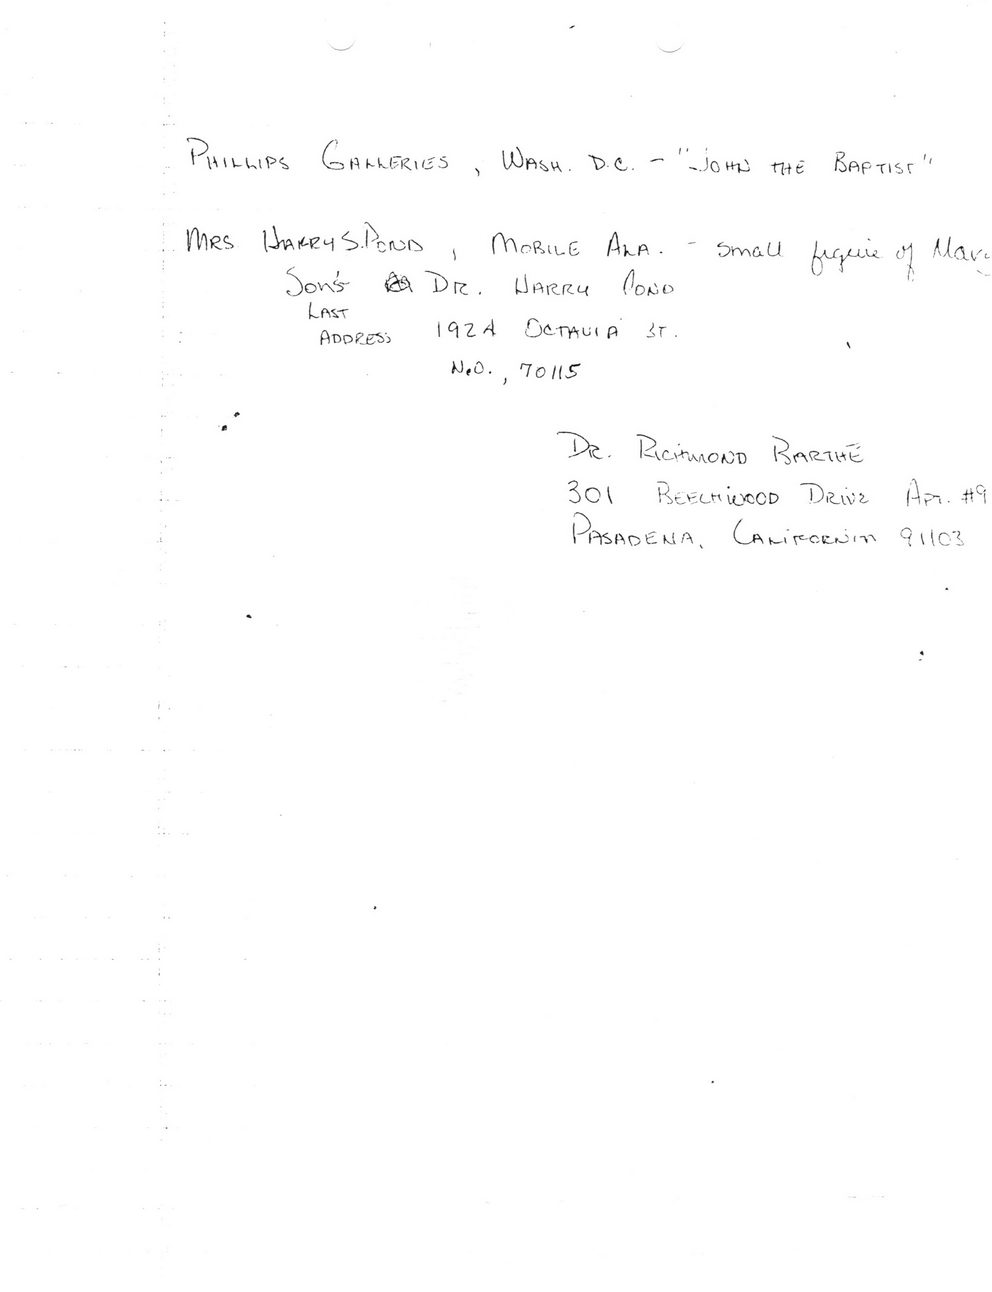 PHILLIPS GALLERIES, WASH. D.C. - "JOHN THE BAPTIST"
MRS HARRY S. POND, MOBILE ALA. - small figure of Mary
Son's DR. HARRY POND
LAST
ADDRESS 1924 OCTAVIA ST.
N.O., 70115
DR. RICHMOND BARTHÉ
301 BEECHWOOD DRIVE APT. #9
PASADENA, CALIFORNIA 91103